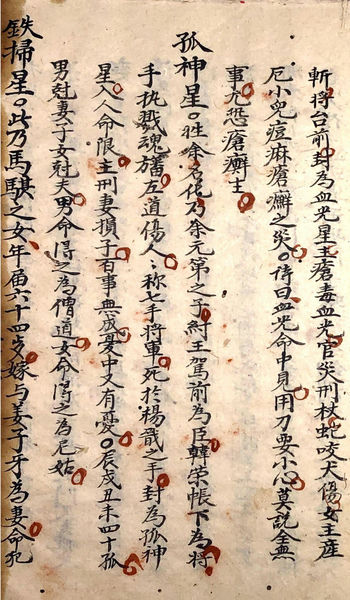 斬将台前封為血光星主瘡毒血光官災刑杖蛇咬犬傷女主産
厄小兒痘麻瘡癬之災。詩曰血光命中見用刀要小心莫説全無
事尤恐瘡癬主
孤神星。姓余名化乃余元第之子紂王駕前為臣韓榮帳下為将
手执戮魂旛左道傷人称七手将軍死於楊戩之手封為孤神
星入人命限主刑妻損子百事無成憂中又有憂。辰戌丑未四十孤
男尅妻子女尅夫男命得之為僧道女命得之為尼姑
鉄掃星。此乃馬騏之女年屆六十四岁嫁与姜子牙為妻命犯